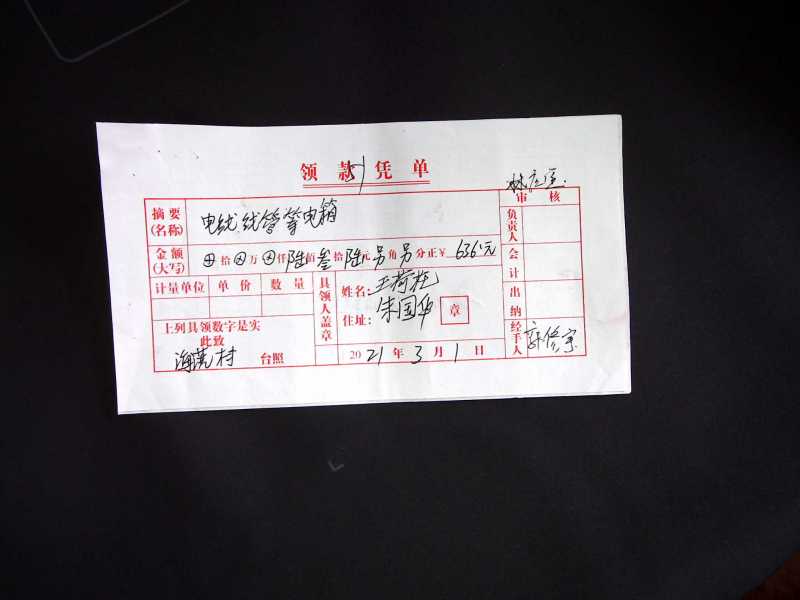 领款凭单
审核
摘要(名称) 电线、线管等电箱
负责人
金额(大写) ⊗拾⊗万⊗仟陆佰叁拾陆元另角另分正¥ 636元
会计
计量单位 单价 数量
具领人盖章
姓名: 王荷
住址: 朱国华
章
出纳
上列具领数字是实
此致
村 台照
2021年3月1日
经手人